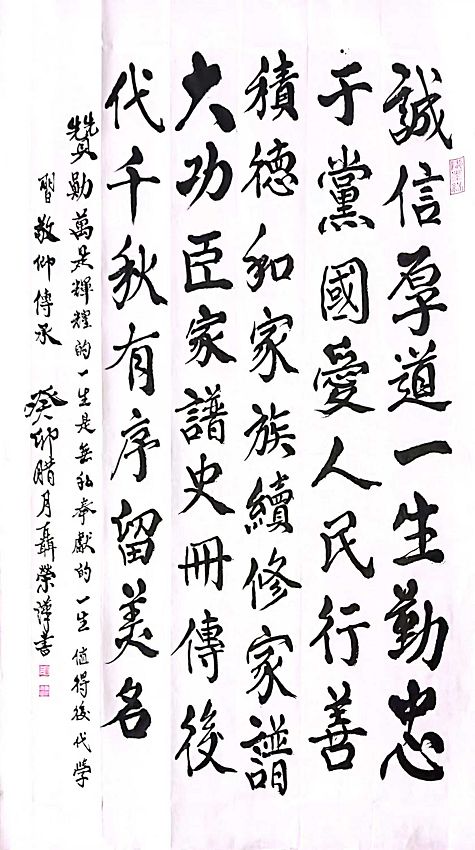 誠信厚道一生勤忠
于黨國愛人民行善
積德和家族續修家譜
大功臣家譜史冊傳後
代千秋有序留美名
贊勛萬是輝煌的一生是無私奉獻的一生值得後代學
習敬仰傳承 癸卯腊月聶榮澤書